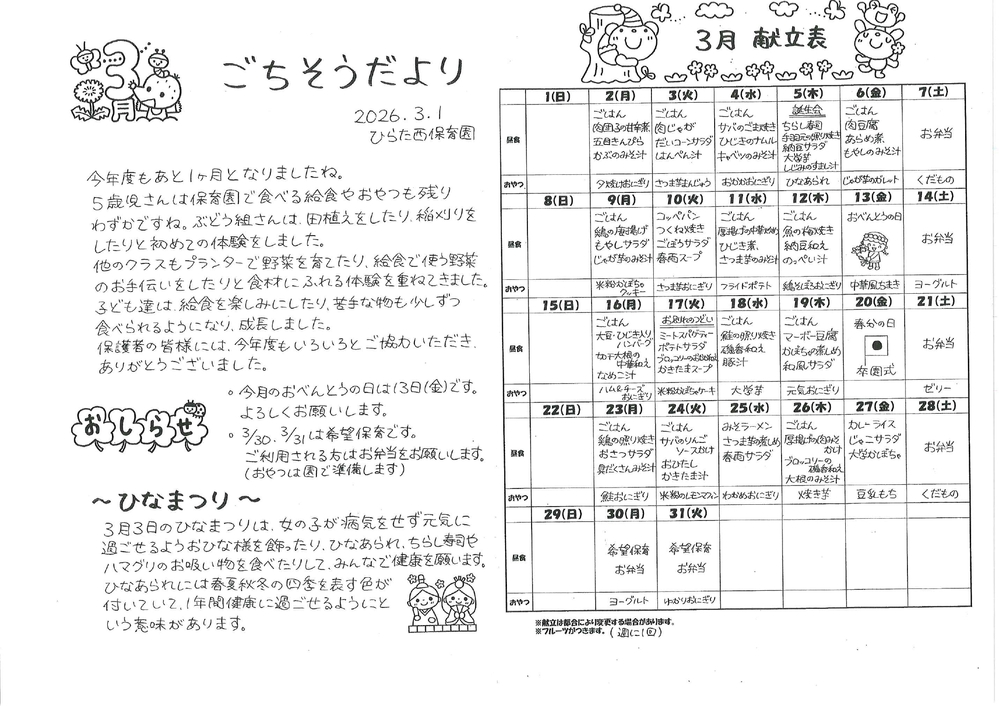 3月
ごちそうだより
2026.3.1
ひらた西保育園
今年度もあと1ヶ月となりましたね。
5歳児さんは保育園で食べる給食やおやつも残り
わずかですね。ぶどう組さんは、田植えをしたり、稲刈りを
したりと初めての体験をしました。
他のクラスもプランターで野菜を育てたり、給食で使う野菜
のお手伝いをしたりと食材にふれる体験を重ねてきました。
子ども達は、給食を楽しみにしたり、苦手な物も少しずつ
食べられるようになり、成長しました。
保護者の皆様には、今年度もいろいろとご協力いただき、
ありがとうございました。
おしらせ
。今月のおべんとうの日は13日(金)です。
よろしくお願いします。
。3/30、3/31は希望保育です。
ご利用される方はお弁当をお願いします。
(おやつは園で準備します)
～ひなまつり～
3月3日のひなまつりは、女の子が病気をせず元気に
過ごせるようおひな様を飾ったり、ひなあられ、ちらし寿司や
ハマグリのお吸い物を食べたりして、みんなで健康を願います。
ひなあられには春夏秋冬の四季を表す色が
付いていて、1年間健康に過ごせるようにと
いう意味があります。
3月 献立表
1(日) 2(月) 3(火) 4(水) 5(木) 6(金) 7(土)
昼食
ごはん
肉団子の甘辛煮
五目きんぴら
かぶのみそ汁
ごはん
肉じゃが
だいコーンサラダ
はんぺん汁
ごはん
サバのごま焼き
ひじきのナムル
キャベツのみそ汁
誕生会
ちらし寿司
手羽元の照り焼き
納豆サラダ
大学芋
しじみのすまし汁
ごはん
肉豆腐
あらめ煮
もやしのみそ汁
お弁当
おやつ
夕焼けおにぎり
さつま芋まんじゅう
おかかおにぎり
ひなあられ
じゃが芋のガレット
くだもの
8(日) 9(月) 10(火) 11(水) 12(木) 13(金) 14(土)
昼食
ごはん
鶏の唐揚げ
もやしサラダ
じゃが芋のみそ汁
コッペパン
つくね焼き
ごぼうサラダ
春雨スープ
ごはん
厚揚げの中華炒め
ひじき煮
さつま芋のみそ汁
ごはん
魚の梅焼き
納豆和え
のっぺい汁
おべんとうの日
お弁当
おやつ
米粉かぼちゃ
クッキー
さつま芋おにぎり
フライドポテト
鶏そぼろおにぎり
中華風ちまき
ヨーグルト
15(日) 16(月) 17(火) 18(水) 19(木) 20(金) 21(土)
昼食
ごはん
大豆・ひじき入り
ハンバーグ
切干大根の
中華和え
なめこ汁
お別れのつどい
ミートスパゲティー
ポテトサラダ
ブロッコリーのおかか和え
かきたまスープ
ごはん
鮭の照り焼き
磯香和え
豚汁
ごはん
マーボー豆腐
かぼちゃの煮しめ
和風サラダ
春分の日
卒園式
お弁当
おやつ
ハム&チーズ
おにぎり
米粉かぼちゃケーキ
大学芋
元気おにぎり
ゼリー
22(日) 23(月) 24(火) 25(水) 26(木) 27(金) 28(土)
昼食
ごはん
鶏の照り焼き
おさつサラダ
具だくさんみそ汁
ごはん
サバのりんご
ソースかけ
おひたし
かきたま汁
みそラーメン
さつま芋の煮しめ
春雨サラダ
ごはん
厚揚げの肉みそ
かけ
ブロッコリーの
磯香和え
大根のみそ汁
カレーライス
じゃこサラダ
大学かぼちゃ
お弁当
おやつ
鮭おにぎり
米粉のレモンマフィン
わかめおにぎり
焼き芋
豆乳もち
くだもの
29(日) 30(月) 31(火)
昼食
希望保育
お弁当
希望保育
お弁当
おやつ
ヨーグルト
ゆかりおにぎり
※献立は都合により変更する場合があります。
※フルーツがつきます。(週に1回)